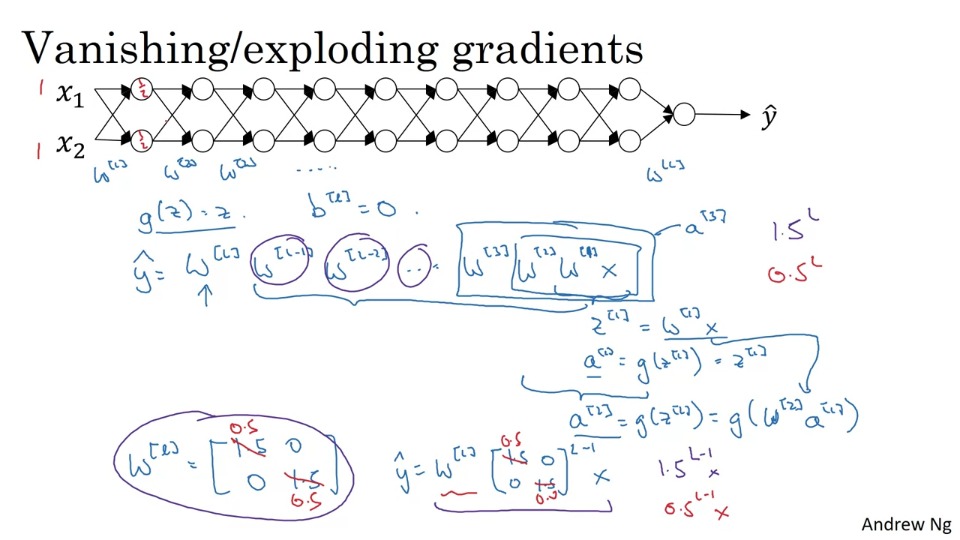 Vanishing/exploding gradients
1 x₁ ½ ŷ
1 x₂ ½
W^[1] W^[2] W^[3] ..... W^[L]
g(z) = z. b^[l] = 0.
ŷ = W^[L] W^[L-1] W^[L-2] ... W^[3] W^[2] W^[1] x a^[3] 1.5^L
0.5^L
z^[1] = W^[1] x
a^[1] = g(z^[1]) = z^[1]
a^[2] = g(z^[2]) = g(W^[2] a^[1])
W^[l] = [1.5 0 0 1.5] 0.5 0.5
ŷ = W^[L] [1.5 0 0 1.5]^L-1 x 0.5 0.5
1.5^L-1 x
0.5^L-1 x
Andrew Ng